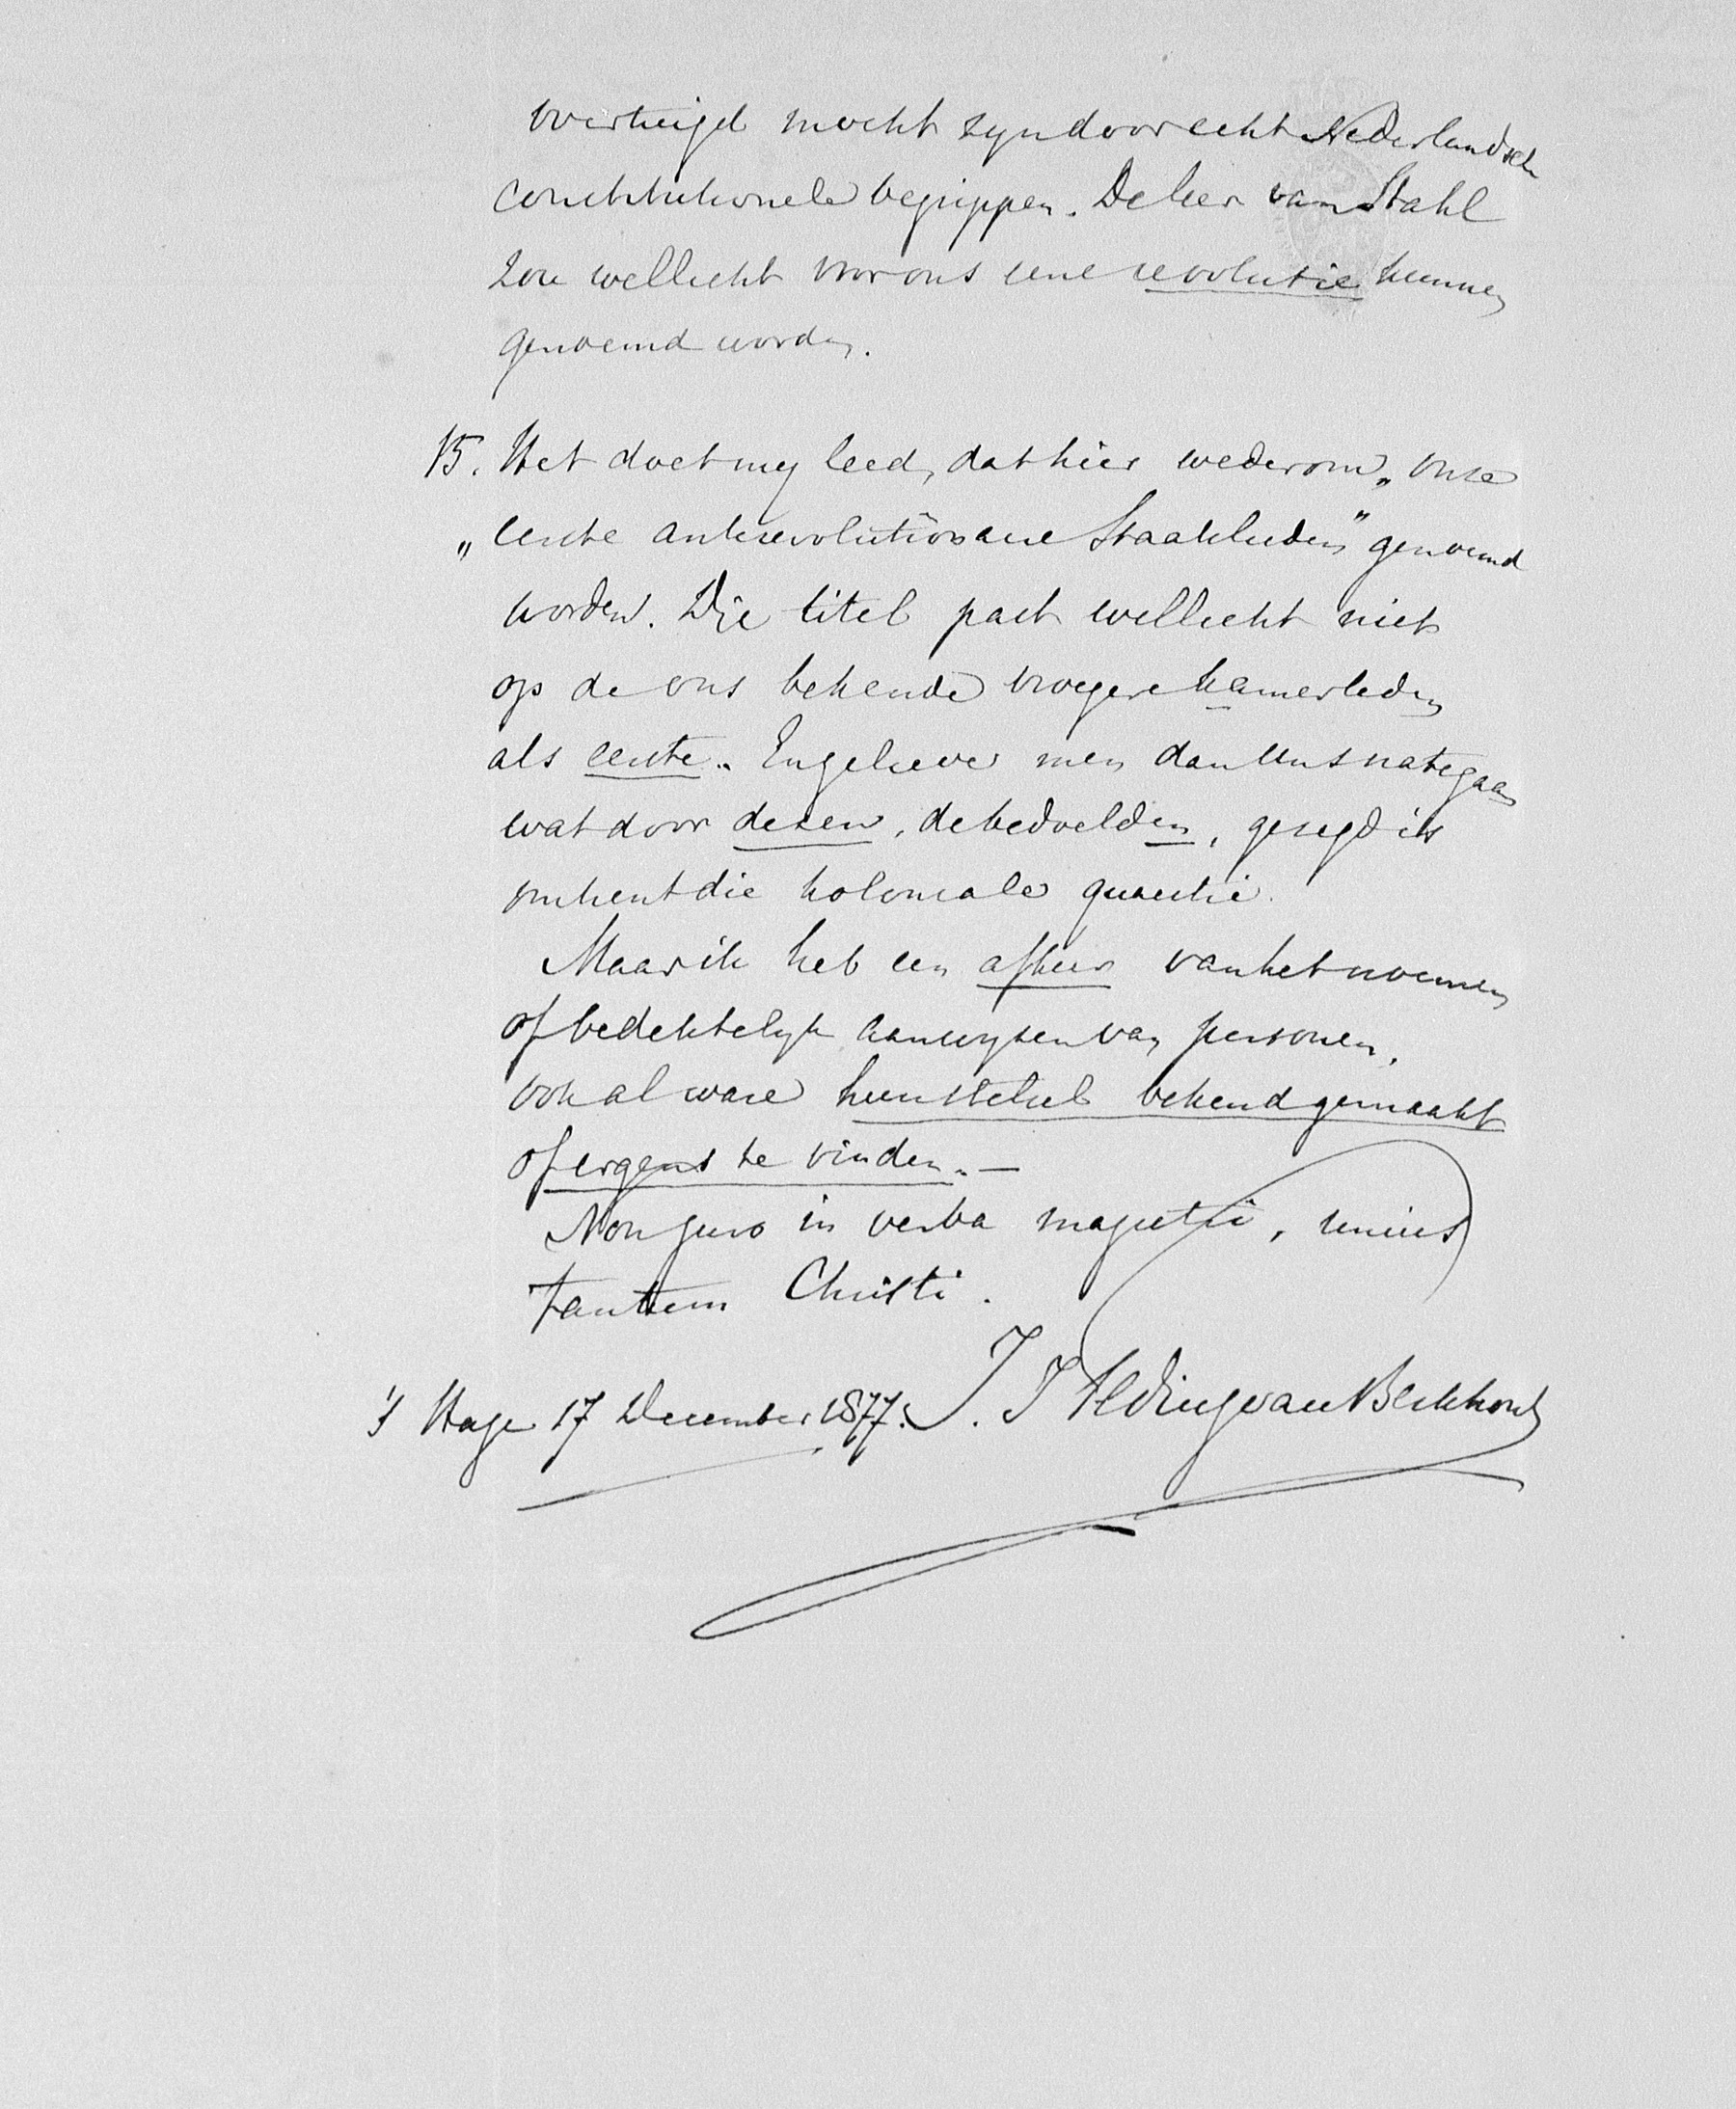 overtuigd mocht zyn door echt Nederlandsche
constitutionele begrippen. De leer van Stahl
zou wellicht voor ons eene revolutie kunnen
genoemd worden.
15. Het doet my leed, dat hier wederom „onze
„eerste antirevolutionaire Staatslieden" genoemd
worden. Die titel past wellicht niet
op de ons bekende vroegere kamerleden
als eerste. En gelieve men dan eens nategaan
wat door dezen, de bedoelden, gezegd is
omtrent die koloniale quaestie.
Maar ik heb een afkeer van het noemen
of bedektelyk aanwyzen van personen,
ook al ware hun stelsel bekend gemaakt
of ergens te vinden. —
Non juro in verba magistri, unius
tantum Christi.
's Hage 17 December 1877. J. J. Teding van Berkhout